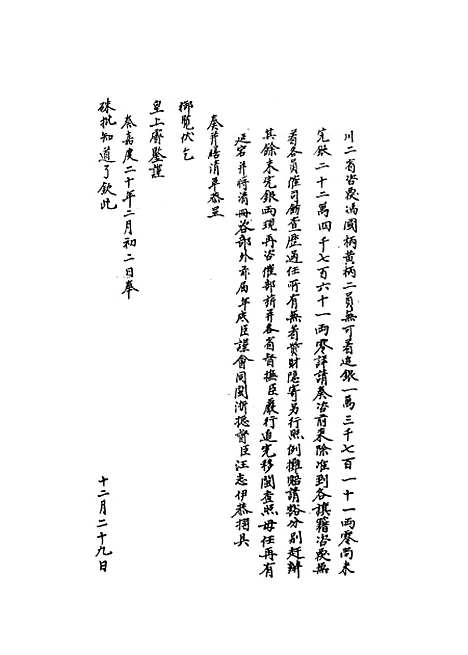 川二省咨覆馮國柄黃柄二員無可着追銀一萬三千七百一十一兩零尚未
完銀二十二萬四千七百六十一兩零詳請奏咨前來除准到各旗籍咨覆無
着各員催司飭查歷過任所有無着貲財隱寄另行照例攤賠請豁分別赶辦
其餘未完銀兩現再咨催部旂并各省督撫臣嚴行追完移閩查照毋任再有
延宕并將清冊咨部外所有年底臣謹會同閩浙總督臣汪志伊恭摺具
奏并繕清單恭呈
御覽伏乞
皇上睿鑒謹
奏嘉慶二十年二月初二日奉
硃批知道了欽此
十二月二十九日